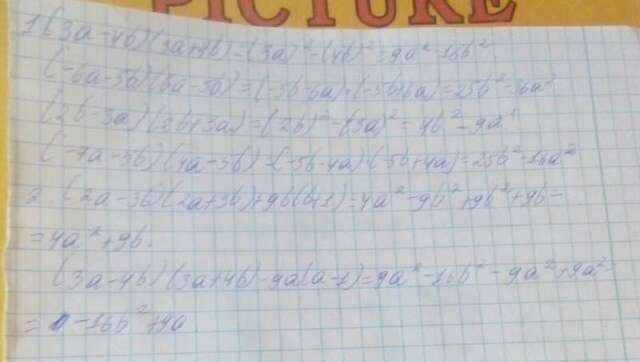 PICTURE
1. (3a-4b)(3a+4b)=(3a)²-(4b)²=9a²-16b²
(-6a-5b)(6a-5b)=(-5b-6a)·(-5b+6a)=25b²-36a²
(2b-3a)(2b+3a)=(2b)²-(3a)²=4b²-9a²
(-4a-5b)(4a-5b)=(-5b-4a)(-5b+4a)=25b²-16a²
2. (2a-3b)(2a+3b)+9b(b+1)=4a²-9b²+9b²+9b=
=4a²+9b.
(3a-4b)(3a+4b)-9a(a-1)=9a²-16b²-9a²+9a²=
= -16b²+9a